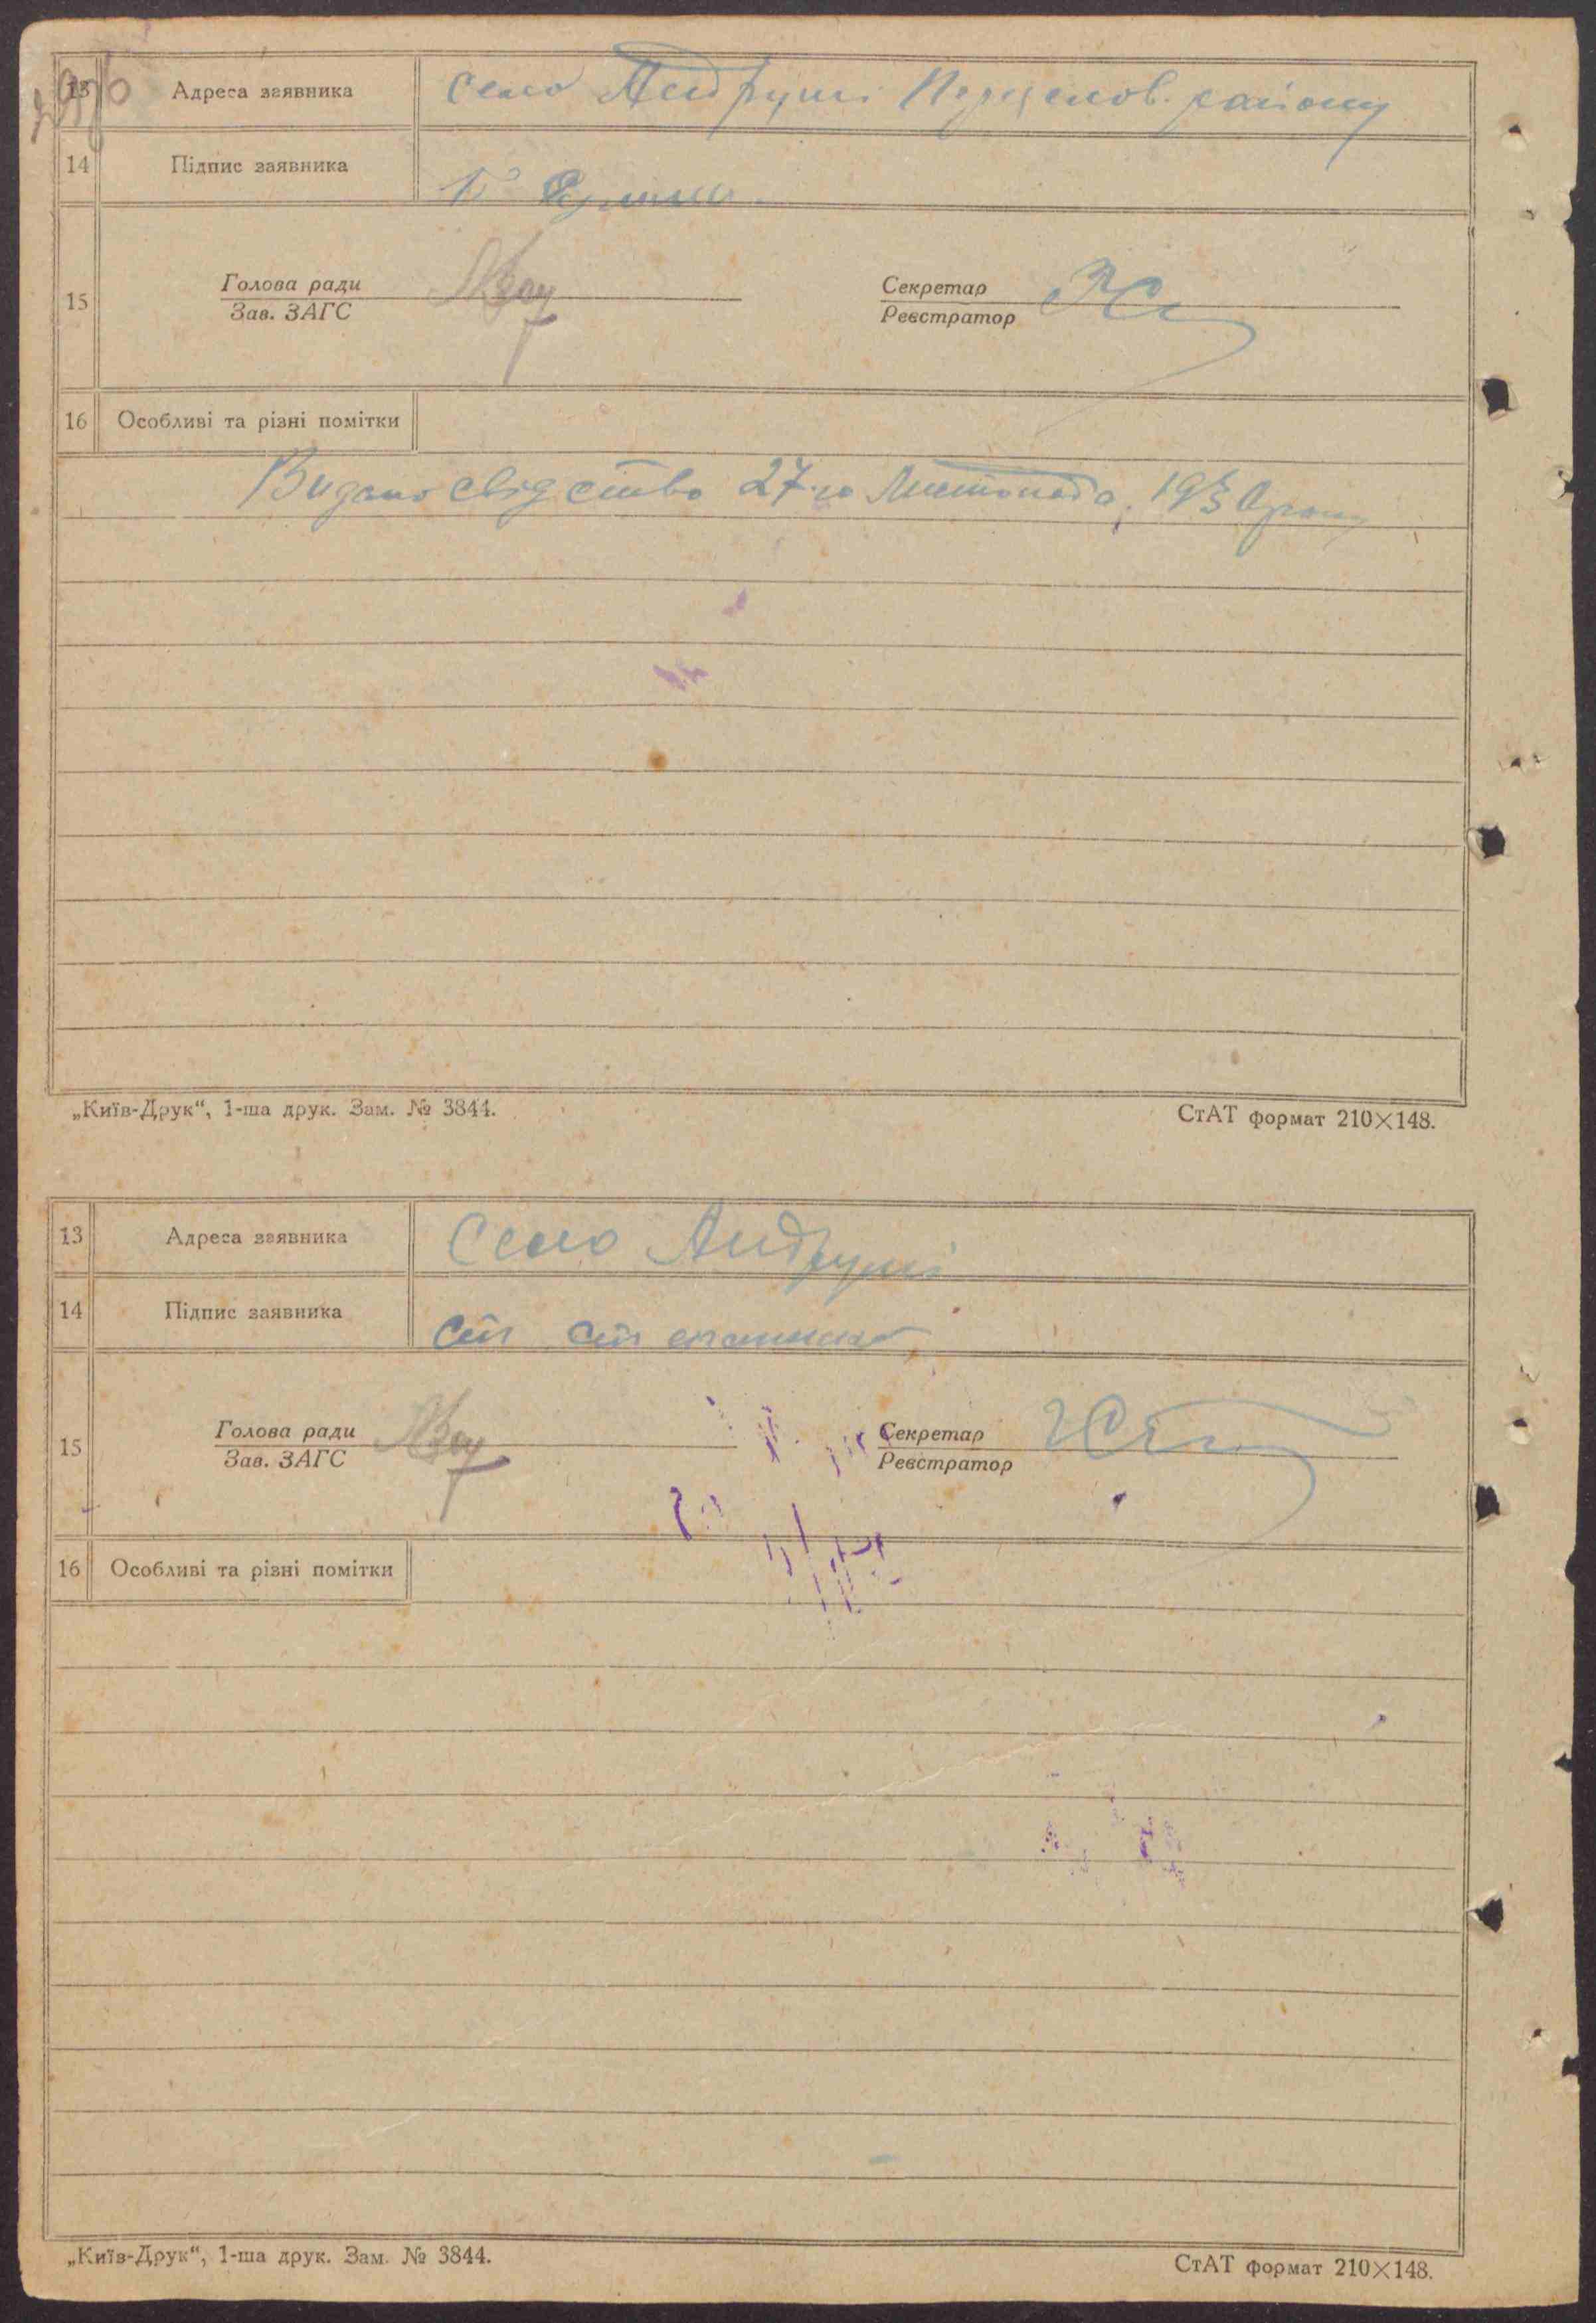 13 Адреса заявника Село Андруші Переяслов. району
14 Підпис заявника
15 Голова ради Секретар
Зав. ЗАГС Реєстратор
16 Особливі та різні помітки
Видано свідство 27-го Листопада, 193 року
„Київ-Друк“, 1-ша друк. Зам. № 3844. СтАТ формат 210×148.
13 Адреса заявника Село Андруші
14 Підпис заявника
15 Голова ради Секретар
Зав. ЗАГС Реєстратор
16 Особливі та різні помітки
„Київ-Друк“, 1-ша друк. Зам. № 3844. СтАТ формат 210×148.